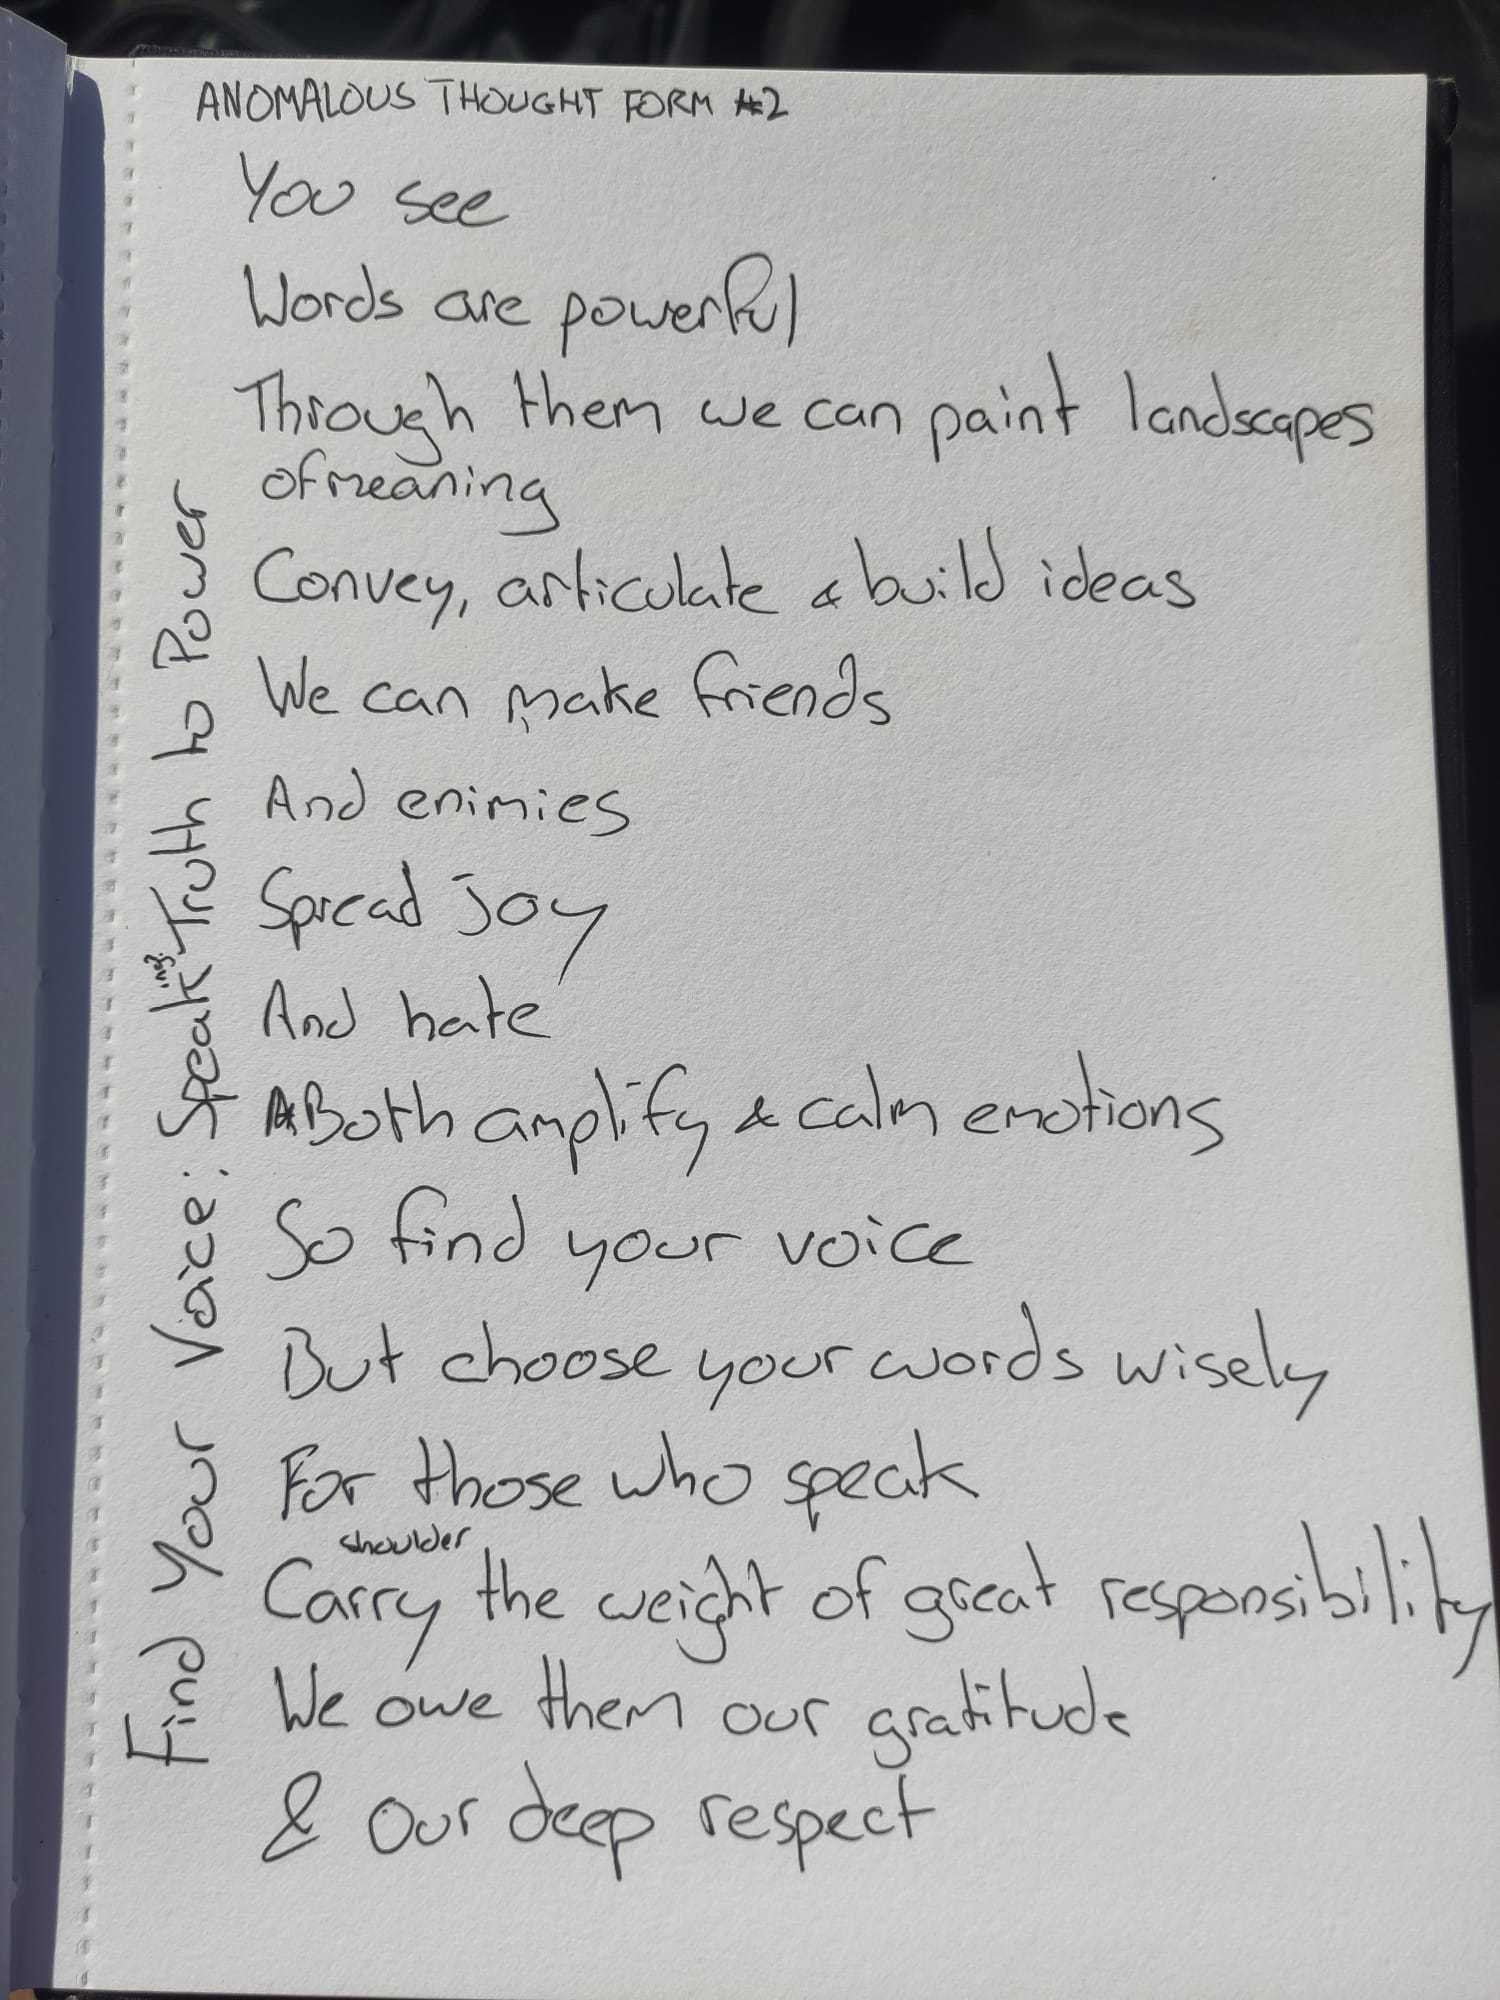 ANOMALOUS THOUGHT FORM #2
You see
Words are powerful
Through them we can paint landscapes
of meaning
Convey, articulate & build ideas
We can make friends
And enimies
Spread joy
And hate
Both amplify & calm emotions
So find your voice
But choose your words wisely
For those who speak
shoulder
Carry the weight of great responsibility
We owe them our gratitude
& our deep respect
Find Your Voice: Speaking Truth to Power